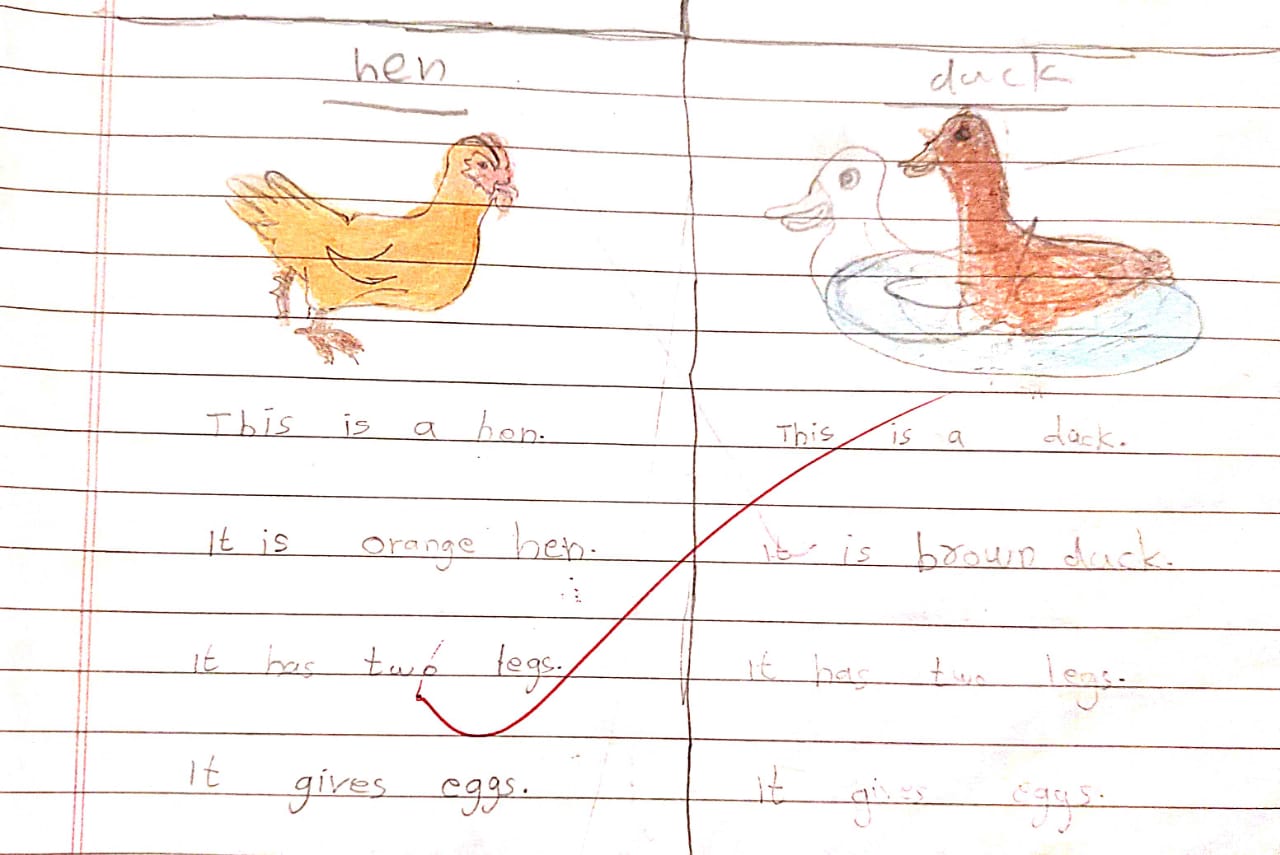 hen
This is a hen.
It is orange hen.
It has two legs.
It gives eggs.
duck
This is a duck.
It is brown duck.
It has two legs.
It gives eggs.